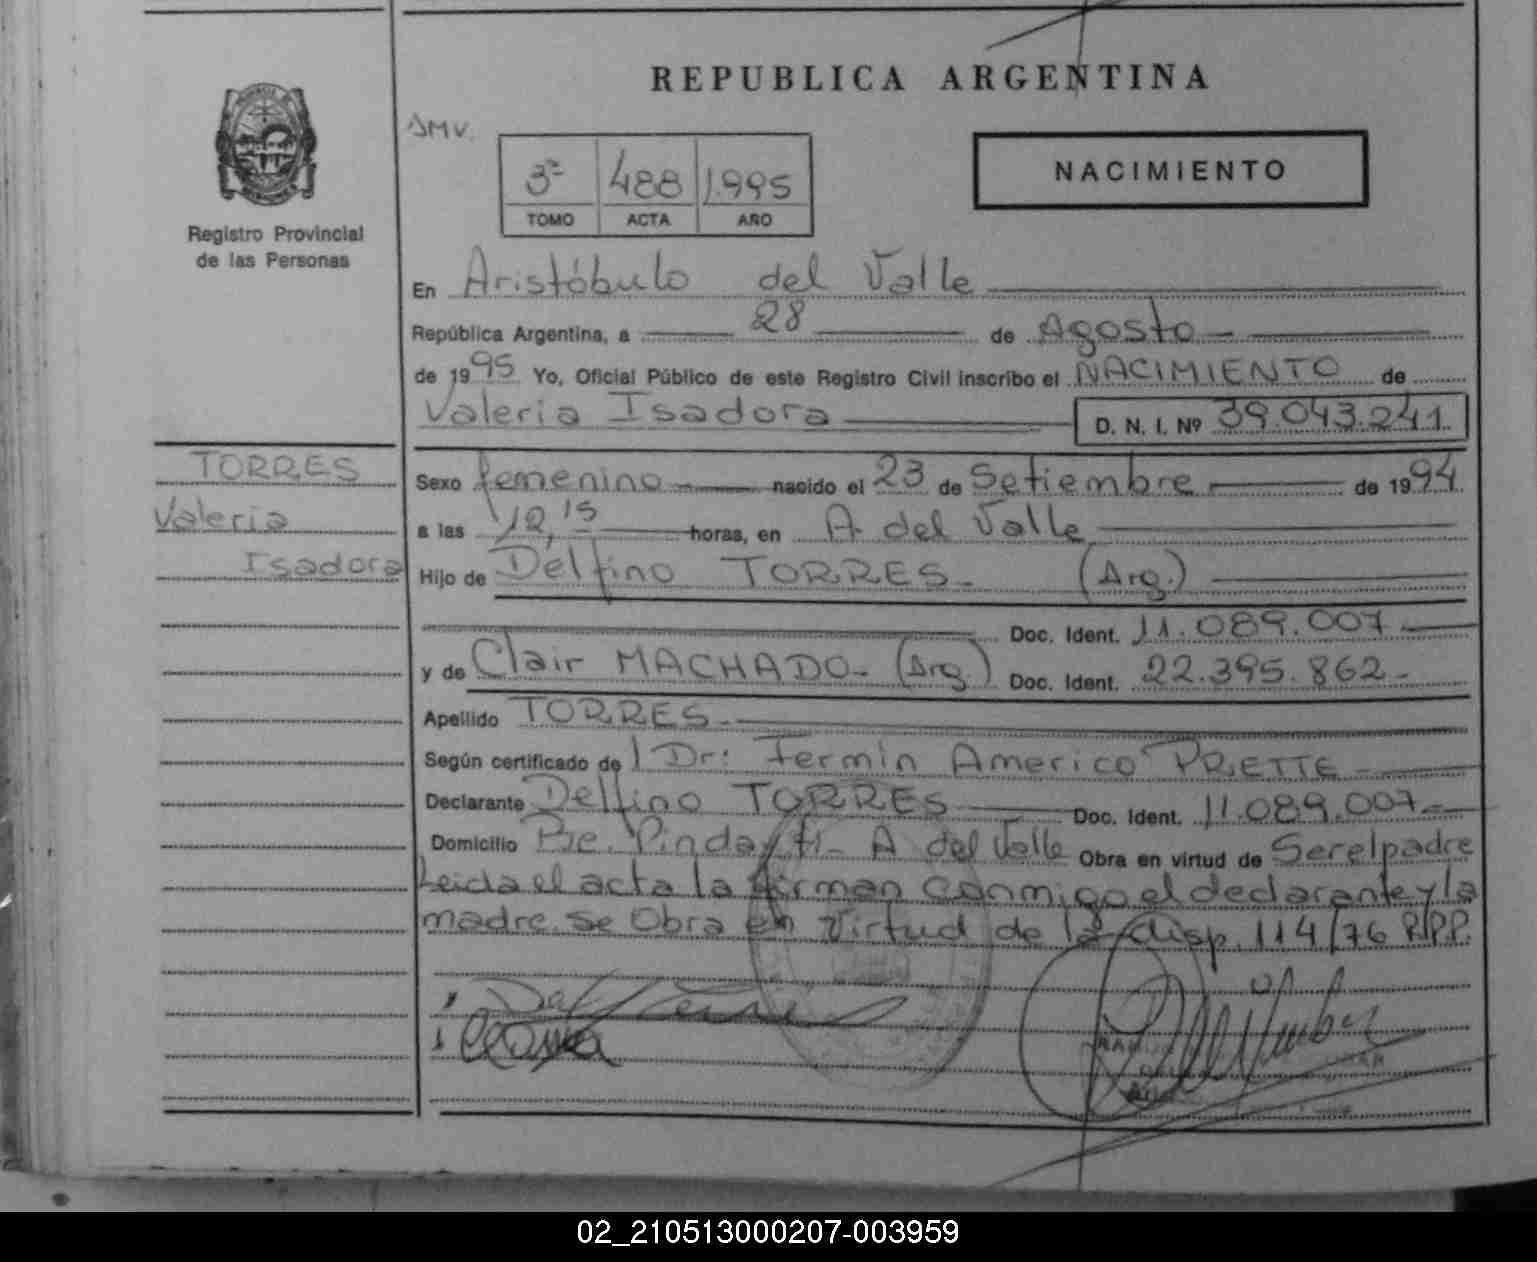 REPUBLICA ARGENTINA
SMV.
3º 488 1.995
TOMO ACTA AÑO
NACIMIENTO
Registro Provincial
de las Personas
En Aristóbulo del Valle
República Argentina, a 28 de Agosto
de 1995 Yo, Oficial Público de este Registro Civil inscribo el NACIMIENTO de
Valeria Isadora D. N. I. Nº 39.043.241.
TORRES
Valeria
Isadora
Sexo femenino nacido el 23 de Setiembre de 1994
a las 12,15 horas, en A del Valle
Hijo de Delfino TORRES. (Arg.)
Doc. Ident. 11.089.007
y de Clair MACHADO (Arg.) Doc. Ident. 22.395.862
Apellido TORRES
Según certificado de l Dr: Fermín Americo PRETTE
Declarante Delfino TORRES Doc. Ident. 11.089.007
Domicilio Pje. Pindayti- A del Valle Obra en virtud de Serelpadre
Leida el acta la firman conmigo el declarante y la
madre. Se Obra en Virtud de la disp. 114/76 R.P.P.
02_210513000207-003959